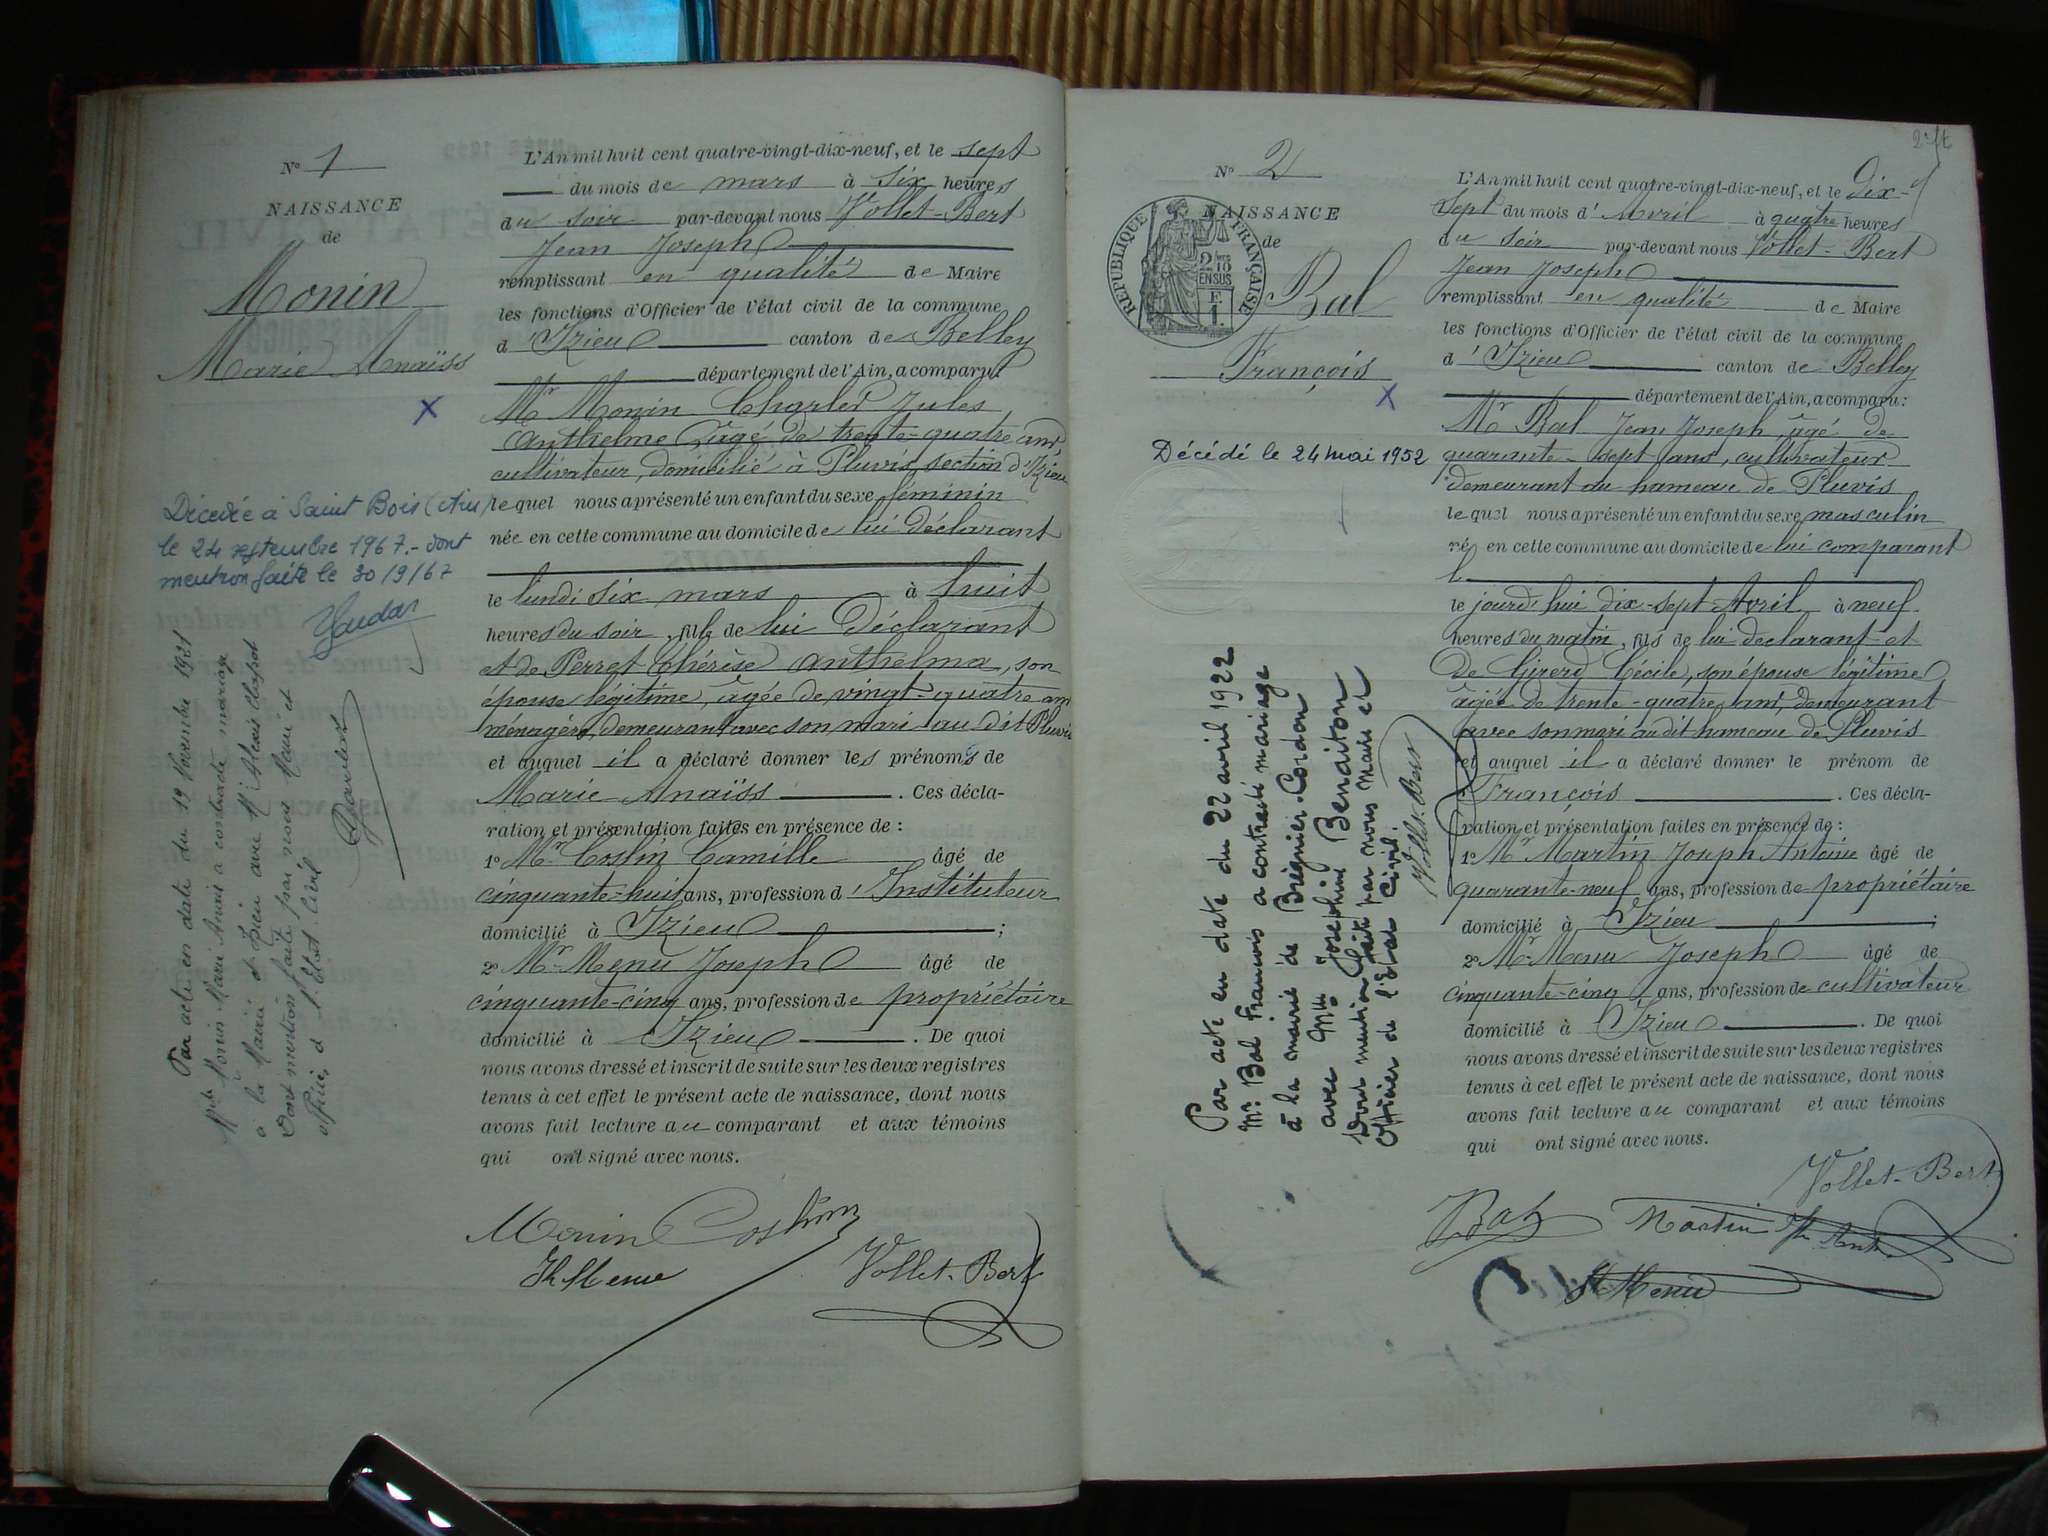 N° 1
NAISSANCE
de
Monin
Marie Anaïss
X
Décédée à Saint Bois (Ain)
le 24 septembre 1967.- dont
mention faite le 30/9/67
Par acte en date du 19 Novembre 1921
Melle Monin Marie Anaïs a contracté mariage
à la Mairie d'Izieu avec Mr Alexis
Dont mention faite par nous Maire et
officier d l'Etat Civil
L'An mil huit cent quatre-vingt-dix-neuf, et le sept
du mois de mars à six heures
du soir par-devant nous Vollet-Bert
Jean Joseph
remplissant en qualité de Maire
les fonctions d'Officier de l'état civil de la commune
d'Izieu canton de Belley
département de l'Ain, a comparu
Mr Monin Charles Jules
Anthelme âgé de trente-quatre ans
cultivateur, domicilié à Pluvis, section d'Izieu
lequel nous a présenté un enfant du sexe féminin
née en cette commune au domicile de lui déclarant
le lundi six mars à huit
heures du soir, fille de lui Déclarant
et de Perret Thérèse Anthelma, son
épouse légitime, âgée de vingt-quatre ans
ménagère, demeurant avec son mari au dit Pluvis
et auquel il a déclaré donner les prénoms de
Marie Anaïss . Ces décla-
ration et présentation faites en présence de :
1° Mr Coslin Camille âgé de
cinquante-huit ans, profession d'Instituteur
domicilié à Izieu ;
2° Mr Menu Joseph âgé de
cinquante-cinq ans, profession de propriétaire
domicilié à Izieu . De quoi
nous avons dressé et inscrit de suite sur les deux registres
tenus à cet effet le présent acte de naissance, dont nous
avons fait lecture au comparant et aux témoins
qui ont signé avec nous.
Monin Coslin
Jh Menu Vollet-Bert
N° 2
NAISSANCE
de
REPUBLIQUE FRANÇAISE
Bal
François
X
Décédé le 24 mai 1952
Par acte en date du 22 avril 1922
Mr Bal François a contracté mariage
à la mairie de Brégnier-Cordon
avec Melle Joséphine Benaiton
Dont mention faite par nous Maire et
Officier de l'Etat Civil.
Vollet-Bert
L'An mil huit cent quatre-vingt-dix-neuf, et le Dix-
sept du mois d'Avril à quatre heures
du soir par-devant nous Vollet-Bert
Jean Joseph
remplissant en qualité de Maire
les fonctions d'Officier de l'état civil de la commune
d'Izieu canton de Belley
département de l'Ain, a comparu :
Mr Bal Jean Joseph âgé de
quarante-sept ans, cultivateur
demeurant au hameau de Pluvis
lequel nous a présenté un enfant du sexe masculin
né en cette commune au domicile de lui comparant
le jourd'hui dix-sept Avril à neuf
heures du matin, fils de lui déclarant et
de Girerd Cécile, son épouse légitime
âgée de trente-quatre ans, demeurant
avec son mari au dit hameau de Pluvis
et auquel il a déclaré donner le prénom de
François . Ces décla-
ration et présentation faites en présence de :
1° Mr Martin Joseph Antoine âgé de
quarante-neuf ans, profession de propriétaire
domicilié à Izieu ;
2° Mr Menu Joseph âgé de
cinquante-cinq ans, profession de cultivateur
domicilié à Izieu . De quoi
nous avons dressé et inscrit de suite sur les deux registres
tenus à cet effet le présent acte de naissance, dont nous
avons fait lecture au comparant et aux témoins
qui ont signé avec nous.
Vollet-Bert
Bal Martin
Jh Menu